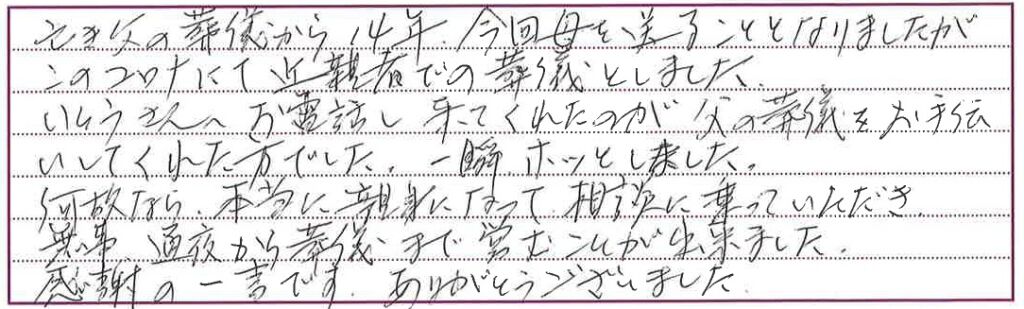 亡き父の葬儀から14年、今回母を送ることとなりましたが
このコロナにて近親者での葬儀としました。
いとうさんへお電話し来てくれたのが父の葬儀をお手伝
いしてくれた方でした。一瞬ホッとし来した。
何故なら、本当に親身になって相談に乗っていただき、
無事、通夜から葬儀まで営むことが出来ました。
感謝の一言です。ありがとうございました。